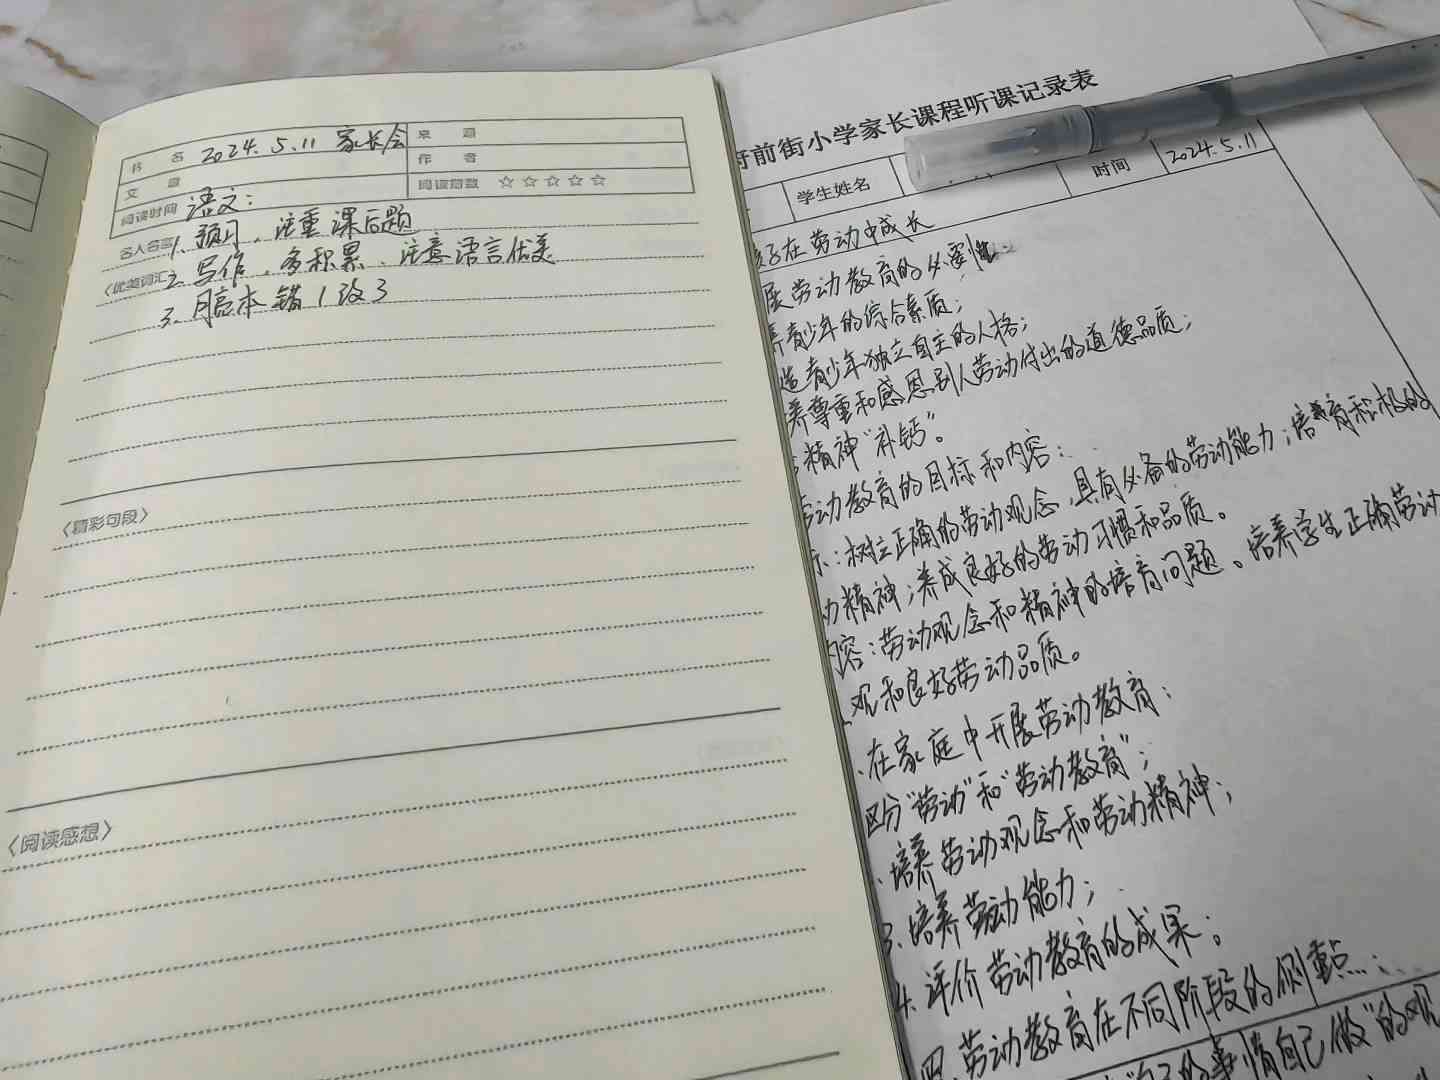 书 名 2024.5.11 家长会
来 源
文 章
作 者
阅读时间
阅读指数 ☆☆☆☆☆
语文：
名人名言 1. 预习，注重课后题
〈优美词汇 2. 写作，多积累、注意语言优美
3. 错1改3
〈精彩句段〉
〈阅读感想〉
前街小学家长课程听课记录表
学生姓名
时间 2024.5.11
孩子在劳动中成长
展劳动教育的必要性：
养青少年的综合素质；
造青少年独立自主的人格；
养尊重和感恩别人劳动付出的道德品质；
精神“补钙”。
劳动教育的目标和内容：
标：树立正确的劳动观念，具有必备的劳动能力；培育积极的
动精神；养成良好的劳动习惯和品质。
内容：劳动观念和精神的培育问题。培养学生正确劳动
观和良好劳动品质。
在家庭中开展劳动教育：
区分“劳动”和“劳动教育”；
培养劳动观念和劳动精神；
3. 培养劳动能力；
4. 评价劳动教育的成果。
四、劳动教育在不同阶段的侧重点：
的事情自己做”的观